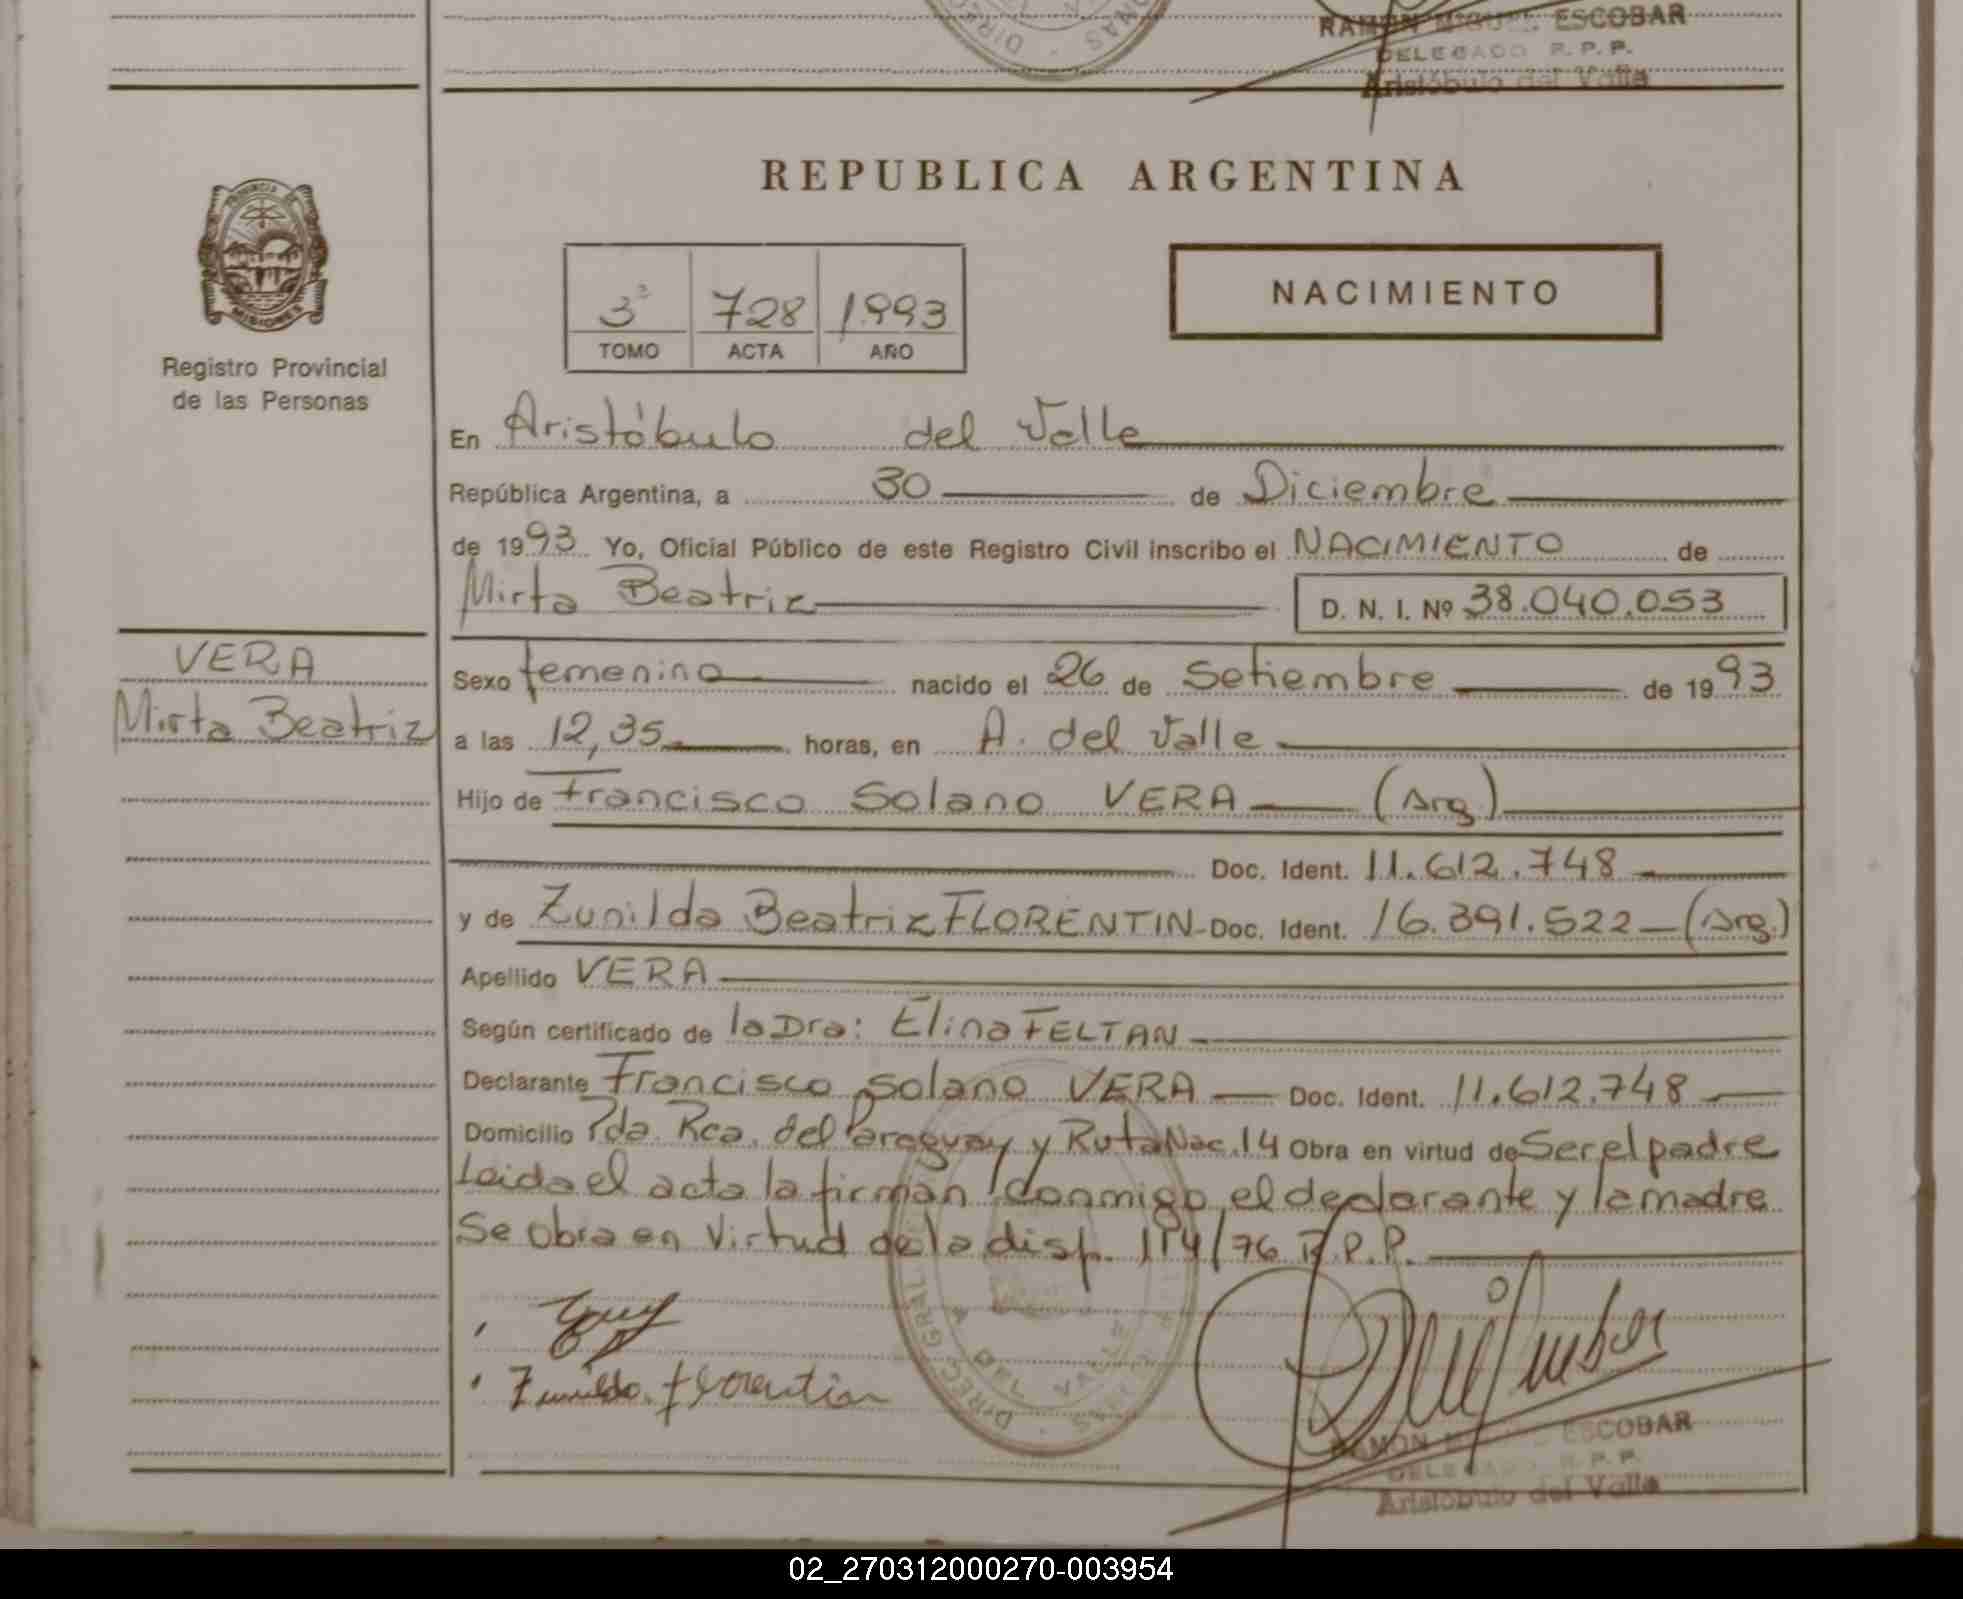 RAMON MIGUEL ESCOBAR
DELEGADO R.P.P.
Aristóbulo del Valle
REPUBLICA ARGENTINA
PROVINCIA DE
MISIONES
Registro Provincial
de las Personas
3º 728 1993
TOMO ACTA AÑO
NACIMIENTO
En Aristóbulo del Valle
República Argentina, a 30 de Diciembre
de 1993 Yo, Oficial Público de este Registro Civil inscribo el NACIMIENTO de
Mirta Beatriz D. N. I. Nº 38.040.053
VERA
Mirta Beatriz
Sexo femenino nacido el 26 de Setiembre de 1993
a las 12,35 horas, en A. del Valle
Hijo de Francisco Solano VERA (Arg.)
Doc. Ident. 11.612.748
y de Zunilda Beatriz FLORENTIN - Doc. Ident. 16.391.522 - (Arg.)
Apellido VERA
Según certificado de la Dra: Elina FELTAN
Declarante Francisco Solano VERA - Doc. Ident. 11.612.748
Domicilio Pda. Rca. del Paraguay y Ruta Nac. 14 Obra en virtud de Ser el padre
Leida el acta la firman conmigo el declarante y la madre
Se obra en Virtud de la disp. 114/76 R.P.P.
Zunilda Florentin
DIREC. GRAL.
A. DEL VALLE
RAMON ESCOBAR
DELEGADO R.P.P.
Aristóbulo del Valle
02_270312000270-003954